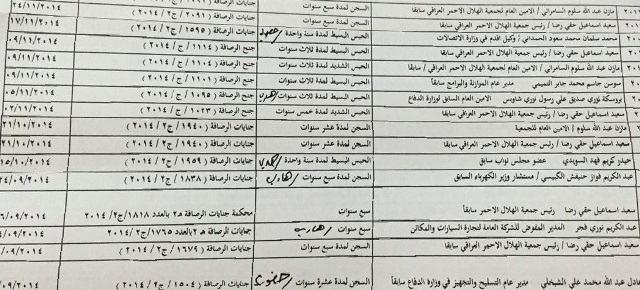 مازن عبد الله سلوم السامرائي / الامين العام لجمعية الهلال الاحمر العراقي سابقا السجن لمدة سبع سنوات جنايات الرصافة ( ٢٠٩١ / ج٢ / ٢٠١٤ ) ٢٤/١١/٢٠١٤
سعيد اسماعيل حقي رضا / رئيس جمعية الهلال الاحمر العراقي سابقا السجن لمدة سبع سنوات جنايات الرصافة ( ١٥٩٥ / ج٢ / ٢٠١٤ ) ١٧/١١/٢٠١٤
محمد سلمان محمد سعود الحمداني / وكيل اقدم في وزارة الاتصالات الحبس البسيط لمدة سنة واحدة جنح الرصافة ( / ج / ٢٠١٤ ) ٠٩/١١/٢٠١٤
سعيد اسماعيل حقي رضا / رئيس جمعية الهلال الاحمر العراقي سابقا الحبس البسيط لمدة ثلاث سنوات جنح الرصافة ( ١١١٤ / ج / ٢٠١٤ ) ٠٩/١١/٢٠١٤
مازن عبد الله سلوم السامرائي / الامين العام لجمعية الهلال الاحمر العراقي / سابقا الحبس الشديد لمدة ثلاث سنوات جنح الرصافة ( ١١٠٤ / ج / ٢٠١٤ ) ٠٩/١١/٢٠١٤
سوسن جاسم محمد جابر التميمي مدير عام الموازنة والبرامج سابقاً الحبس البسيط لمدة ثلاث سنوات جنح الرصافة ( ١١٠١ / ج / ٢٠١٤ ) ٠٩/١١/٢٠١٤
بروسكة نوري صديق علي رسول نوري شاويس الامين العام السابق لوزارة الدفاع الحبس البسيط لمدة ثلاث سنوات جنح الرصافة ( ١٠٩٥ / ج / ٢٠١٤ ) ٠٥/١١/٢٠١٤
سعيد اسماعيل حقي رضا / رئيس جمعية الهلال الاحمر العراقي سابقا الحبس الشديد لمدة خمس سنوات جنح الرصافة ( ١٠٢٣ / ج / ٢٠١٤ ) ٠٢/١١/٢٠١٤
مازن عبد الله سلوم / الامين العام للجمعية السجن لمدة عشر سنوات جنايات الرصافة ( ١٩٤٠ / ج٢ / ٢٠١٤ ) ٢١/١٠/٢٠١٤
سعيد اسماعيل حقي رضا / رئيس جمعية الهلال الاحمر العراقي سابقا السجن لمدة عشر سنوات جنايات الرصافة ( ١٩٤٠ / ج٢ / ٢٠١٤ ) ٢١/١٠/٢٠١٤
حيدر كريم فهد السويدي عضو مجلس نواب سابق الحبس البسيط لمدة سنة واحدة جنايات الرصافة ( ١٩٥٩ / ج٢ / ٢٠١٤ ) ١٥/١٠/٢٠١٤
عبد الكريم فواز حنيفش الكبيسي / مستشار وزير الكهرباء السابق السجن لمدة سبع سنوات هارب جنايات الرصافة ( ١٨٣٨ / ج٢ / ٢٠١٤ ) ٢٤/٠٩/٢٠١٤
سعيد اسماعيل حقي رضا رئيس جمعية الهلال الاحمر سابقا سبع سنوات محكمة جنايات الرصافة هـ٢ بالعدد ١٨١٨/ج٢/٢٠١٤ ٠٩/٢٠١٤
عبد الكريم نوري فجر المدير المفوض للشركة العامة لتجارة السيارات والمكائن سبع سنوات هارب جنايات الرصافة هـ٢ بالعدد ١٧٦٥/ج٢/٢٠١٤ ٠٩/٢٠١٤
سعيد اسماعيل حقي رضا / رئيس جمعية الهلال الاحمر العراقي سابقا السجن لمدة سبع سنوات جنايات الرصافة ( ١٦٧٩ / ج٢ / ٢٠١٤ ) ٠٩/٢٠١٤
عبد الله محمد علي الشيخلي / مدير عام التسليح والتجهيز في وزارة الدفاع سابقاً السجن لمدة عشرة سنوات جنايات الرصافة ( ١٥٠٤ / ج٢ / ٢٠١٤ ) ٠٩/٢٠١٤